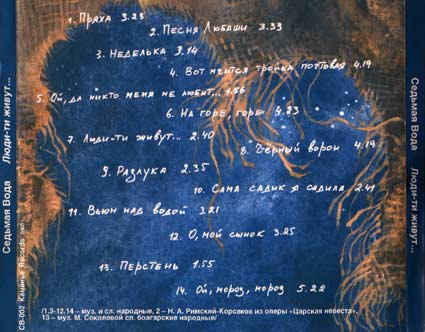 1. Пряха 3.23
2. Песня Любаши 3.33
3. Неделька 3.14
4. Вот мчится тройка почтовая 4.19
5. Ой, да никто меня не любит... 1.56
6. На горе, горе 4.23
7. Люди-ти живут... 2.40
8. Чёрный ворон 4.19
9. Разлука 2.35
10. Сама садик я садила 2.41
11. Вьюн над водой 3.21
12. О, мой сынок 3.25
13. Перстень 1.55
14. Ой, мороз, мороз 5.22
/1.3-12.14 – муз. и сл. народные, 2 – Н. А. Римский-Корсаков из оперы «Царская невеста»,
13 – муз. М. Соколовой сл. болгарские народные/
Седьмая Вода Люди-ти живут...
CB-002 Records
Седьмая Вода Люди-ти живут...